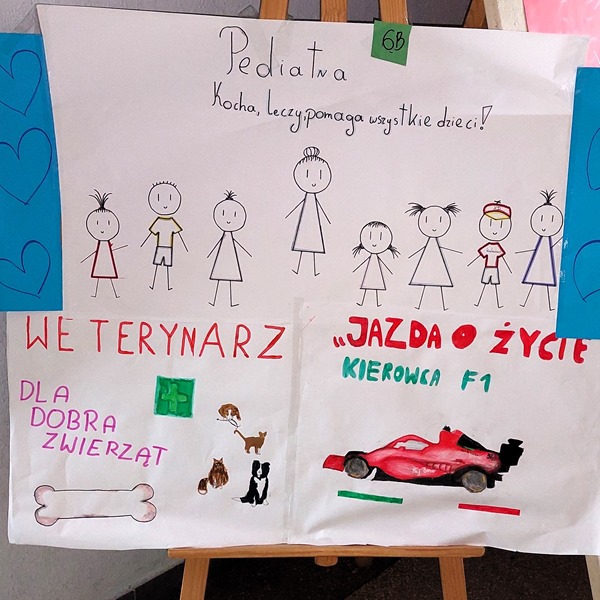 6B
Pediatra
Kocha, leczy, pomaga wszystkie dzieci!
WETERYNARZ
DLA
DOBRA
ZWIERZĄT
„JAZDA O ŻYCIE
KIEROWCA F1